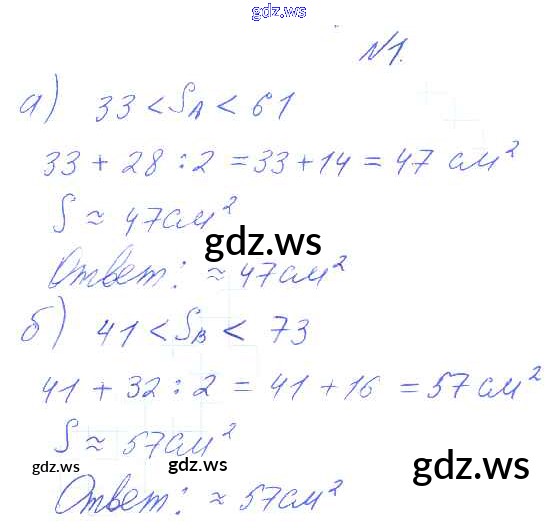 gdz.ws
№1.
а) 33 < S_A < 61
33 + 28 : 2 = 33 + 14 = 47 см²
S ≈ 47 см²
gdz.ws
Ответ: ≈ 47 см²
б) 41 < S_B < 73
41 + 32 : 2 = 41 + 16 = 57 см²
S ≈ 57 см²
gdz.ws gdz.ws gdz.ws
Ответ: ≈ 57 см²